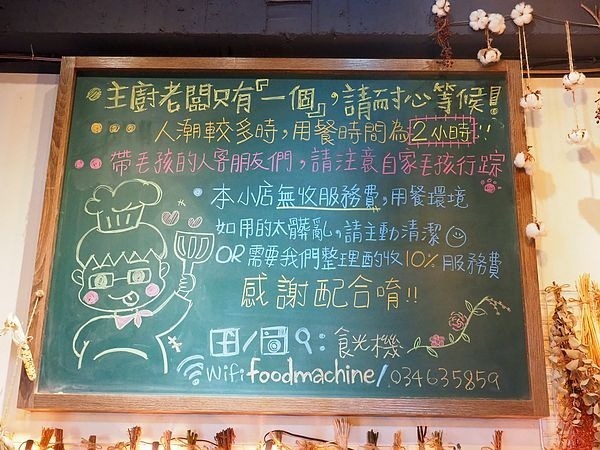 主廚老闆只有『一個』，請耐心等候!!
人潮較多時，用餐時間為2小時!!
帶毛孩的人客朋友們，請注意自家毛孩行踪
本小店無收服務費，用餐環境
如用的太髒亂，請主動清潔
OR 需要我們整理酌收10%服務費
感謝配合唷!!
f/ : 食光機
Wifi foodmachine/034635859